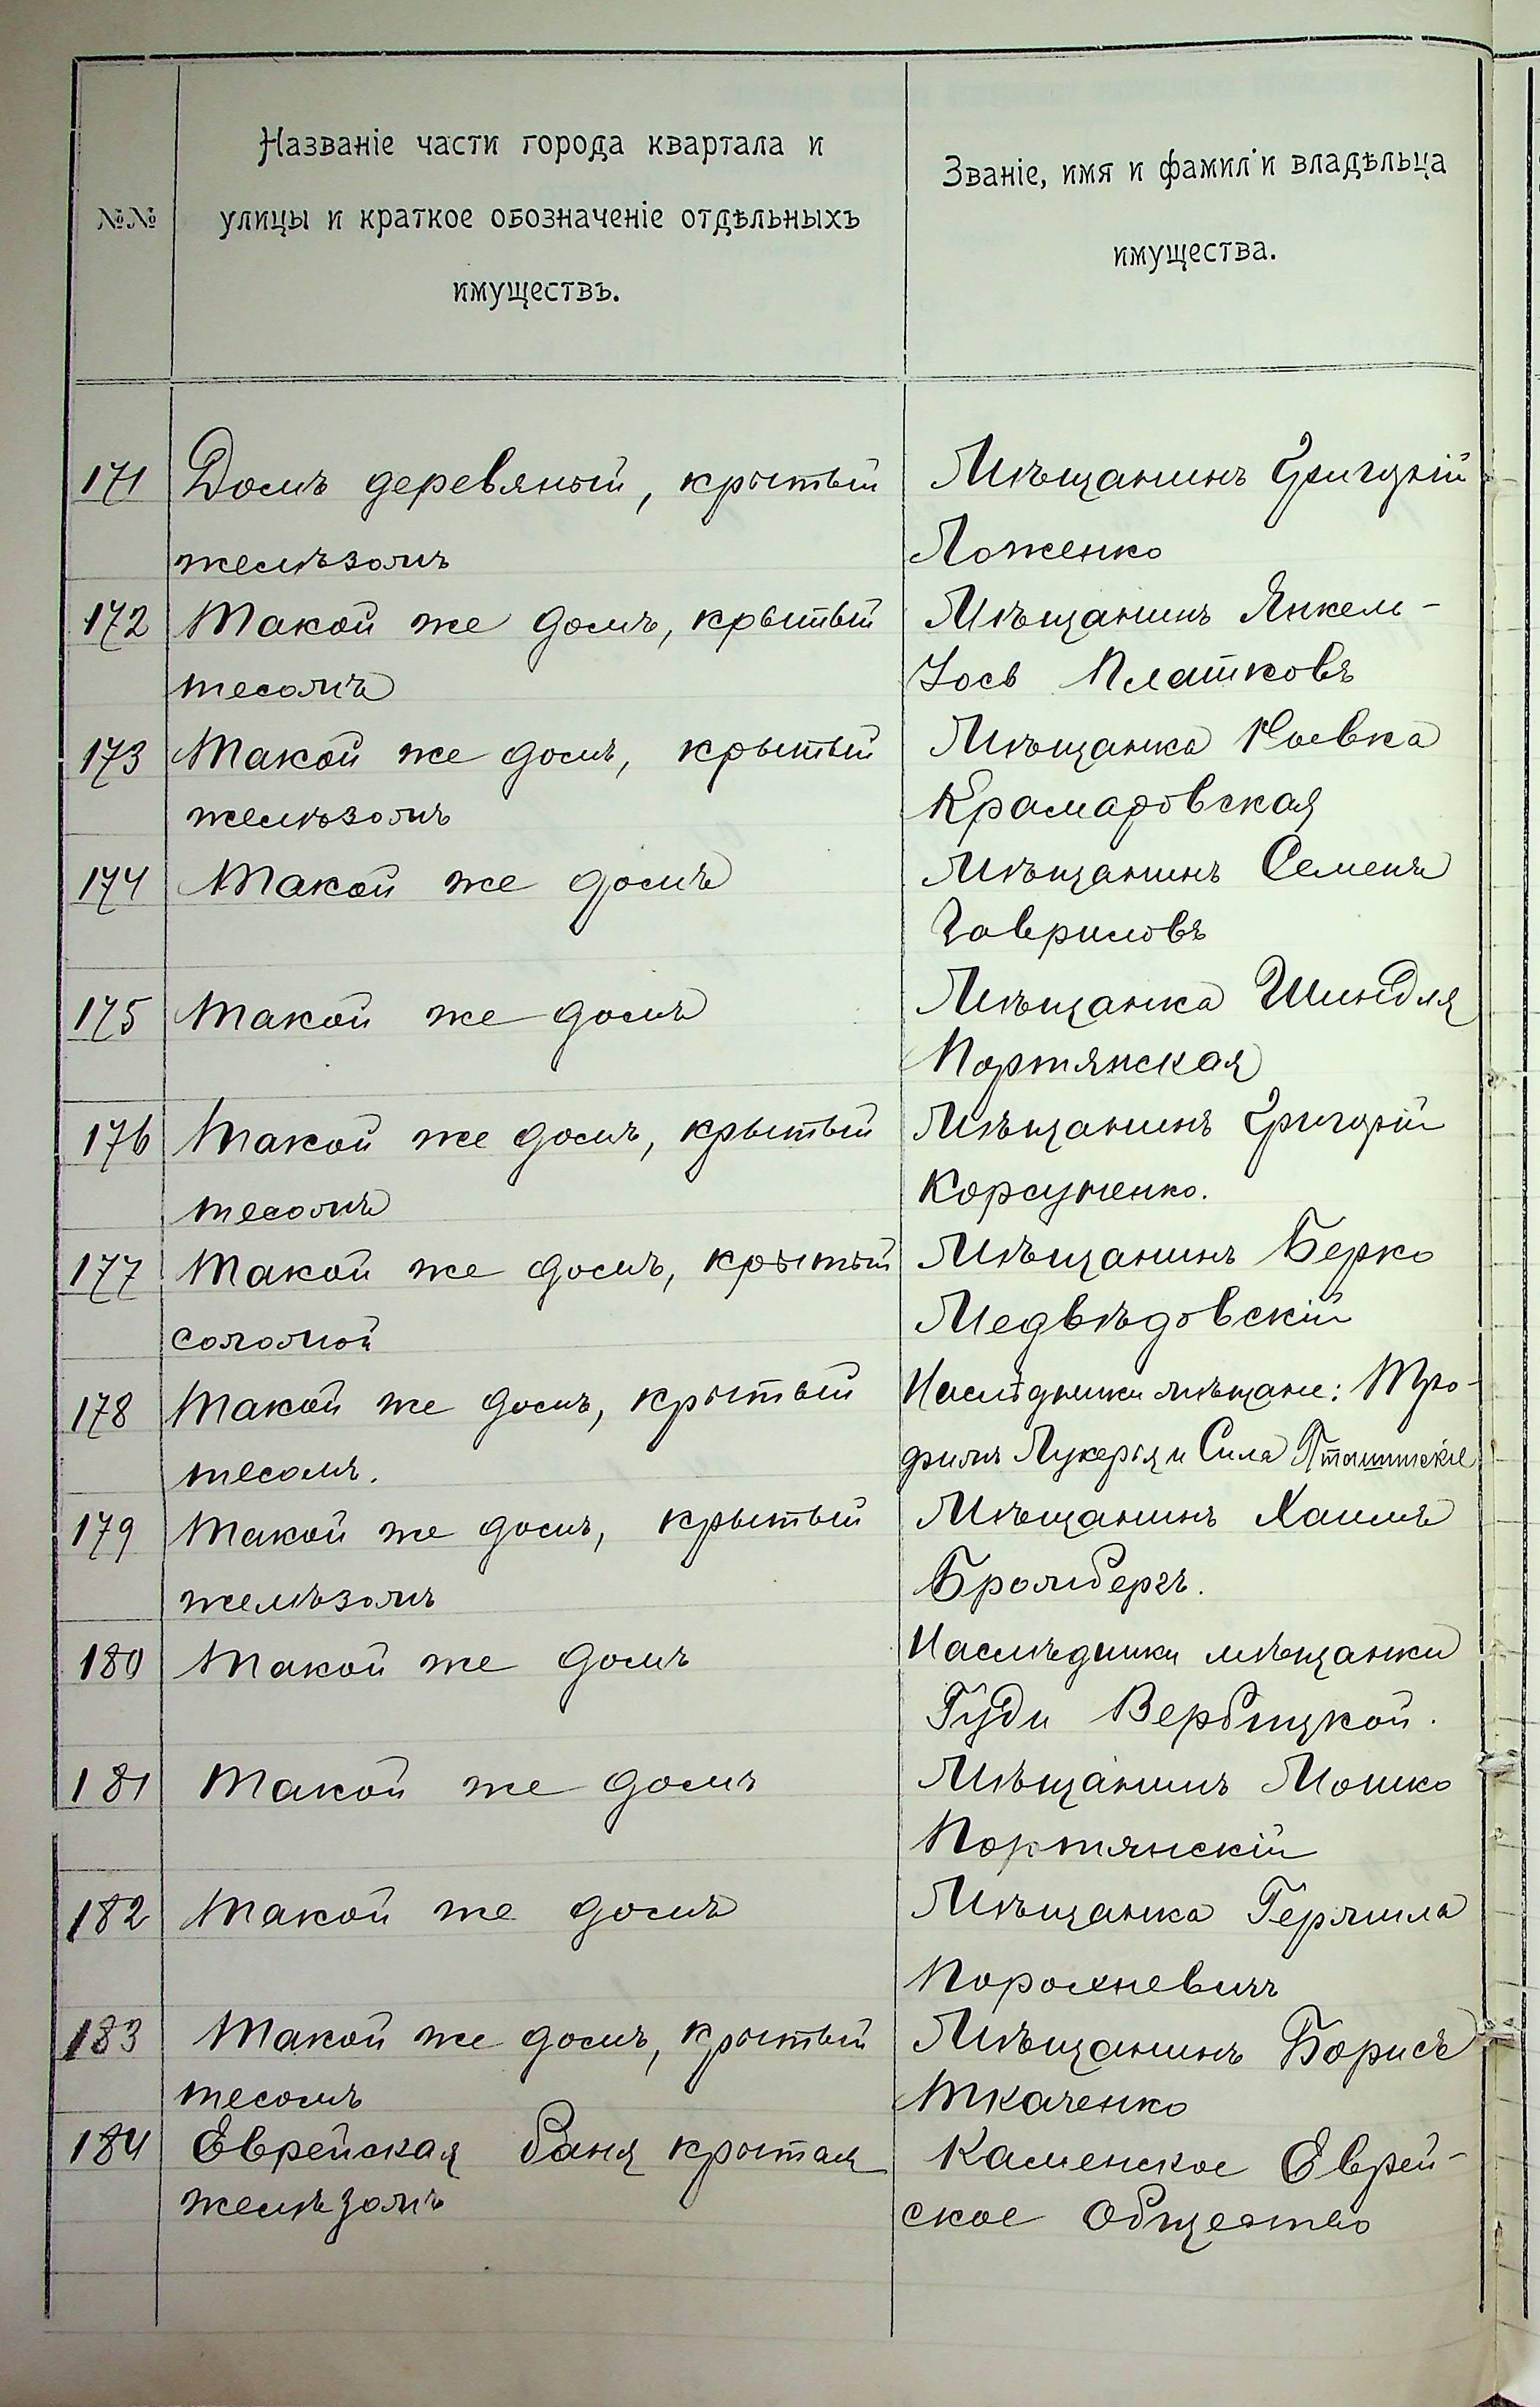 №№
Названіе части города квартала и
улицы и краткое обозначеніе отдѣльныхъ
имуществъ.
Званіе, имя и фамиліи владѣльца
имущества.
171 Домъ деревяный, крытый Мѣщанинъ Григорій
желѣзомъ Ложенко
172 Такой же домъ, крытый Мѣщанинъ Янкель-
тесомъ Іось Платковъ
173 Такой же домъ, крытый Мѣщанка
желѣзомъ Крамаровская
174 Такой же домъ Мѣщанинъ Семенъ
Гавриловъ
175 Такой же домъ Мѣщанка Шиндля
Портянская
176 Такой же домъ, крытый Мѣщанинъ Григорій
тесомъ Корсуненко.
177 Такой же домъ, крытый Мѣщанинъ Берко
соломой Медвѣдовскій
178 Такой же домъ, крытый Наслѣдники мѣщане: Тро-
тесомъ. фимъ Лукерія и Сила
179 Такой же домъ, крытый Мѣщанинъ Хаимъ
желѣзомъ Бромбергъ.
180 Такой же домъ Наслѣдники мѣщанки
Гуди Вербицкой.
181 Такой же домъ Мѣщанинъ Мошко
Портянскій
182 Такой же домъ Мѣщанка
Порохневичъ
183 Такой же домъ, крытый Мѣщанинъ Борисъ
тесомъ Ткаченко
184 Еврейская баня крытая Каменское Еврей-
желѣзомъ ское Общество